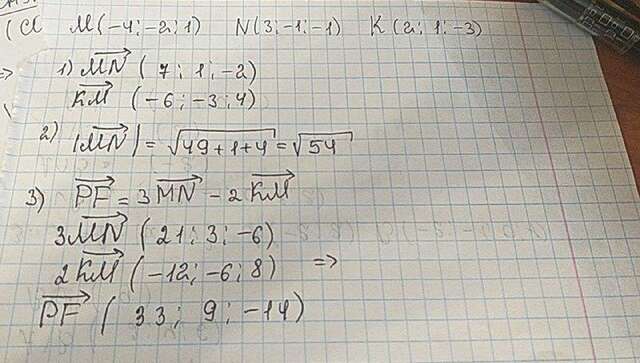 M(-4;-2;1) N(3;-1;-1) K(2;1;-3)
1) MN (7;1;-2)
KM (-6;-3;4)
2) |MN| = √49+1+4 = √54
3) PF = 3MN - 2KM
3MN (21;3;-6)
2KM (-12;-6;8) =>
PF (33;9;-14)